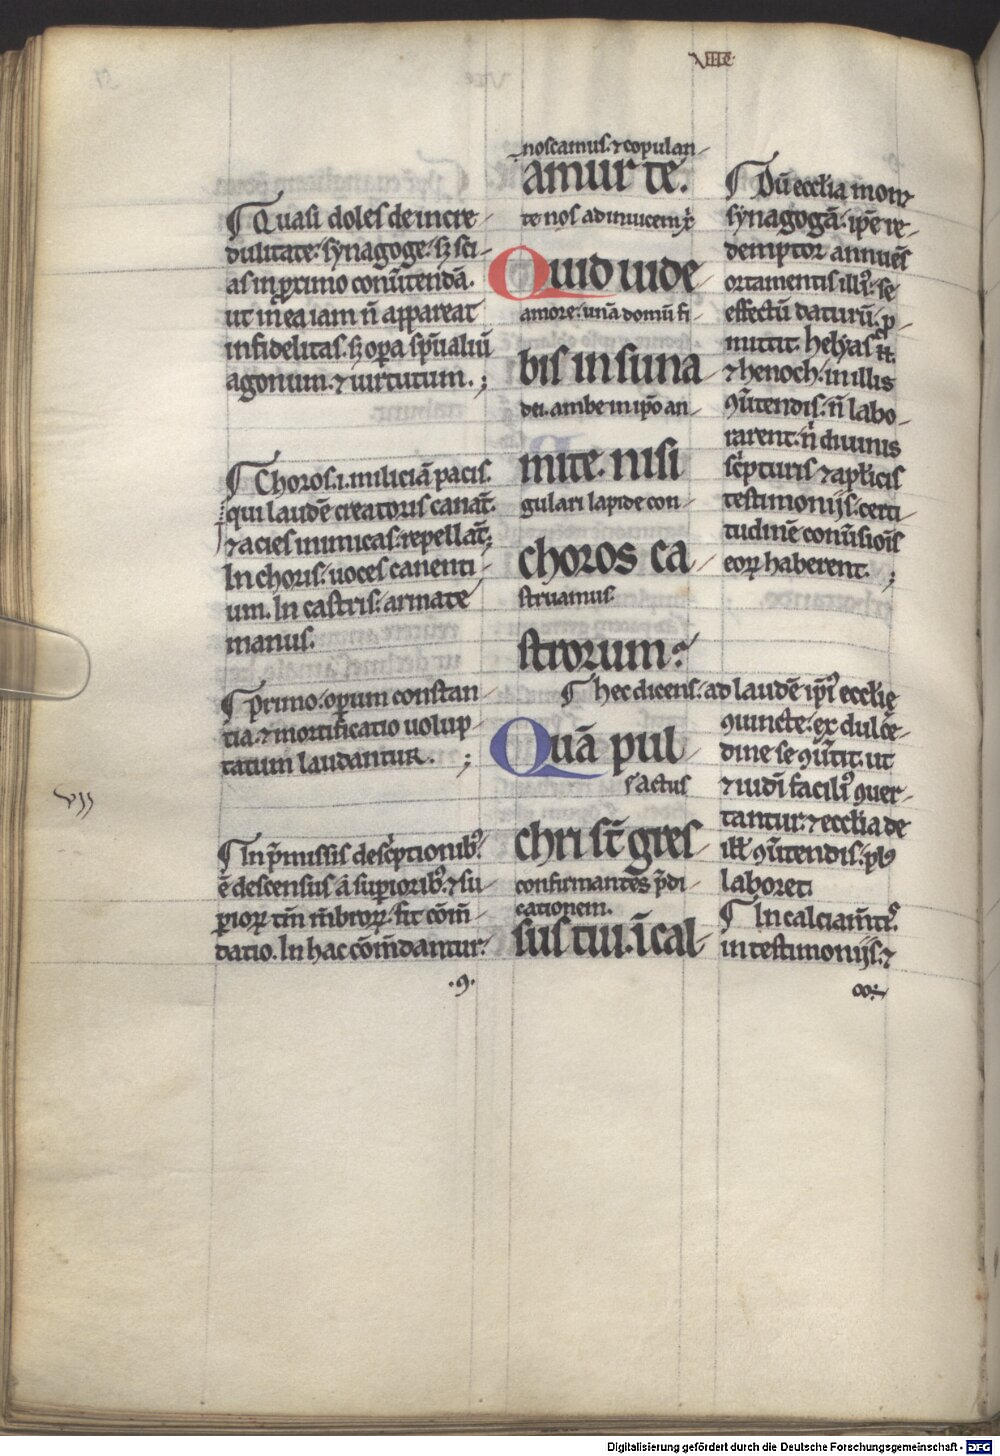 VIIIe
¶ Quasi doles de incre-
dulitate: synagoge: sꝫ sci-
as in proximo con̄utendā.
ut in ea iam n̄ appareat
infidelitas. sꝫ opa spūaliū
agonum. ⁊ uirtutum. ;
¶ Choros .i. miliciā pacis.
qui laudē creatoris canat̄.
⁊ acies inimicas: repellat̄;
In choris: uoces canenti-
um. In castris: armate
manus.
¶ primo: operum constan
tia. ⁊ mortificatio uolup-
tatum laudantur. ;
vii
¶ In p̄missis desc̄ptionib᷒
ē descensus a superiorib᷒. ⁊ su-
perioꝝ tm̄ mēbroꝝ: fit cōm̄-
datio. In hac cōm̄dantur.
.9.
noscamus. ⁊ copulan-
amur te.
te nos adinuicem
Quid uide
amore: unā domū fi-
bis in suna-
dei. ambe in ip̄o an-
mite. nisi
gulari lapide con-
choros ca-
struamus.
strorum.
Quā pul
s actus
chri st̄ gres-
confirmantes p̄di-
cationem.
sus tui. ī cal-
¶ Dū ecclia mone
synagogā: ip̄e re-
demptor annuēs
ortamentis illi᷒: se
effectū daturū. p-
mittit. helyas
⁊ henoch. in illis
ꝯūtendis: n̄ labo-
rarent: n̄ diuinis
sc̄pturis ⁊ apl̄icis
testimonijs: certi
tudinē conūsiōis
eoꝝ haberent. ;
¶ hec dicens: ad laudē ip̄i᷒ ecclię
ꝯuincte: ex dulcē-
dine se ꝯūtit. ut
⁊ iudi facili᷒ ꝯuer-
tantur: ⁊ ecclia de
ill᷒ ꝯūtendis: pl᷒
laboret.
¶ In calciam̄tis.
in testimonijs. ⁊
Digitalisierung gefördert durch die Deutsche Forschungsgemeinschaft - DFG